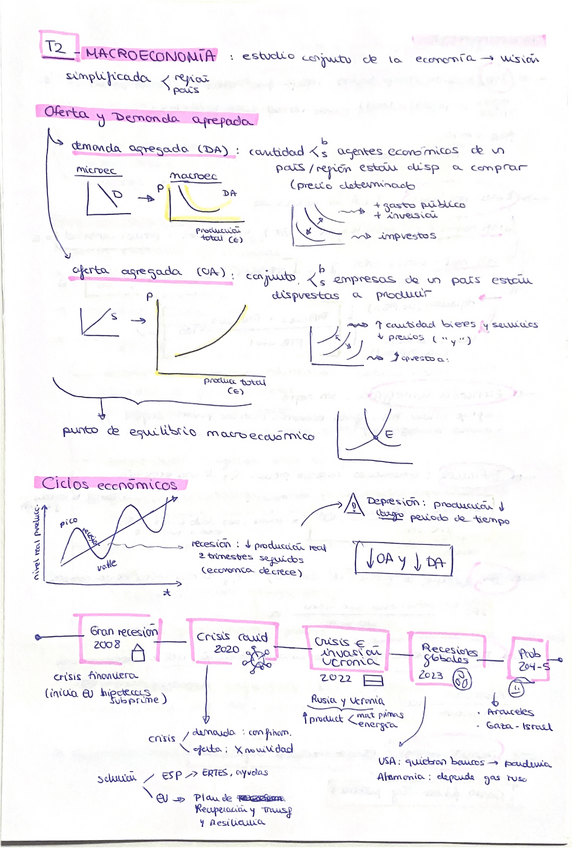 T2 MACROECONOMÍA : estudio conjunto de la economía → visión
simplificada < región
país
Oferta y Demanda agregada
demanda agregada (DA) : cantidad < b
s agentes económicos de un
país/región están disp a comprar
(precio determinado
microec
D
→
macroec
P
DA
producción
total (€)
+ gasto público
+ inversión
impuestos
oferta agregada (OA) : conjunto < b
s empresas de un país están
dispuestas a producir
S
→
P
produc total
(€)
↑ cantidad bienes y servicios
↓ precios ("y")
punto de equilibrio macroeconómico
E
Ciclos económicos
nivel real producc.
pico
valle
t
recesión : ↓ producción real
2 trimestres seguidos
(economía decrece)
Depresión : producción ↓
largo período de tiempo
↓ OA y ↓ DA
Gran recesión
2008
crisis financiera
(inicia EU hipotecas
subprime)
Crisis covid
2020
crisis < demanda : confinam.
oferta : X movilidad
solución < ESP → ERTES, ayudas
EU → Plan de
Recuperación y Transf
y Resiliencia
Crisis €
invasión
Ucrania
2022
Rusia y Ucrania
↑ product < mat primas
energía
Recesiones
globales
2023
USA: quiebran bancos → pandemia
Alemania : depende gas ruso
· Aranceles
· Gaza - Israel